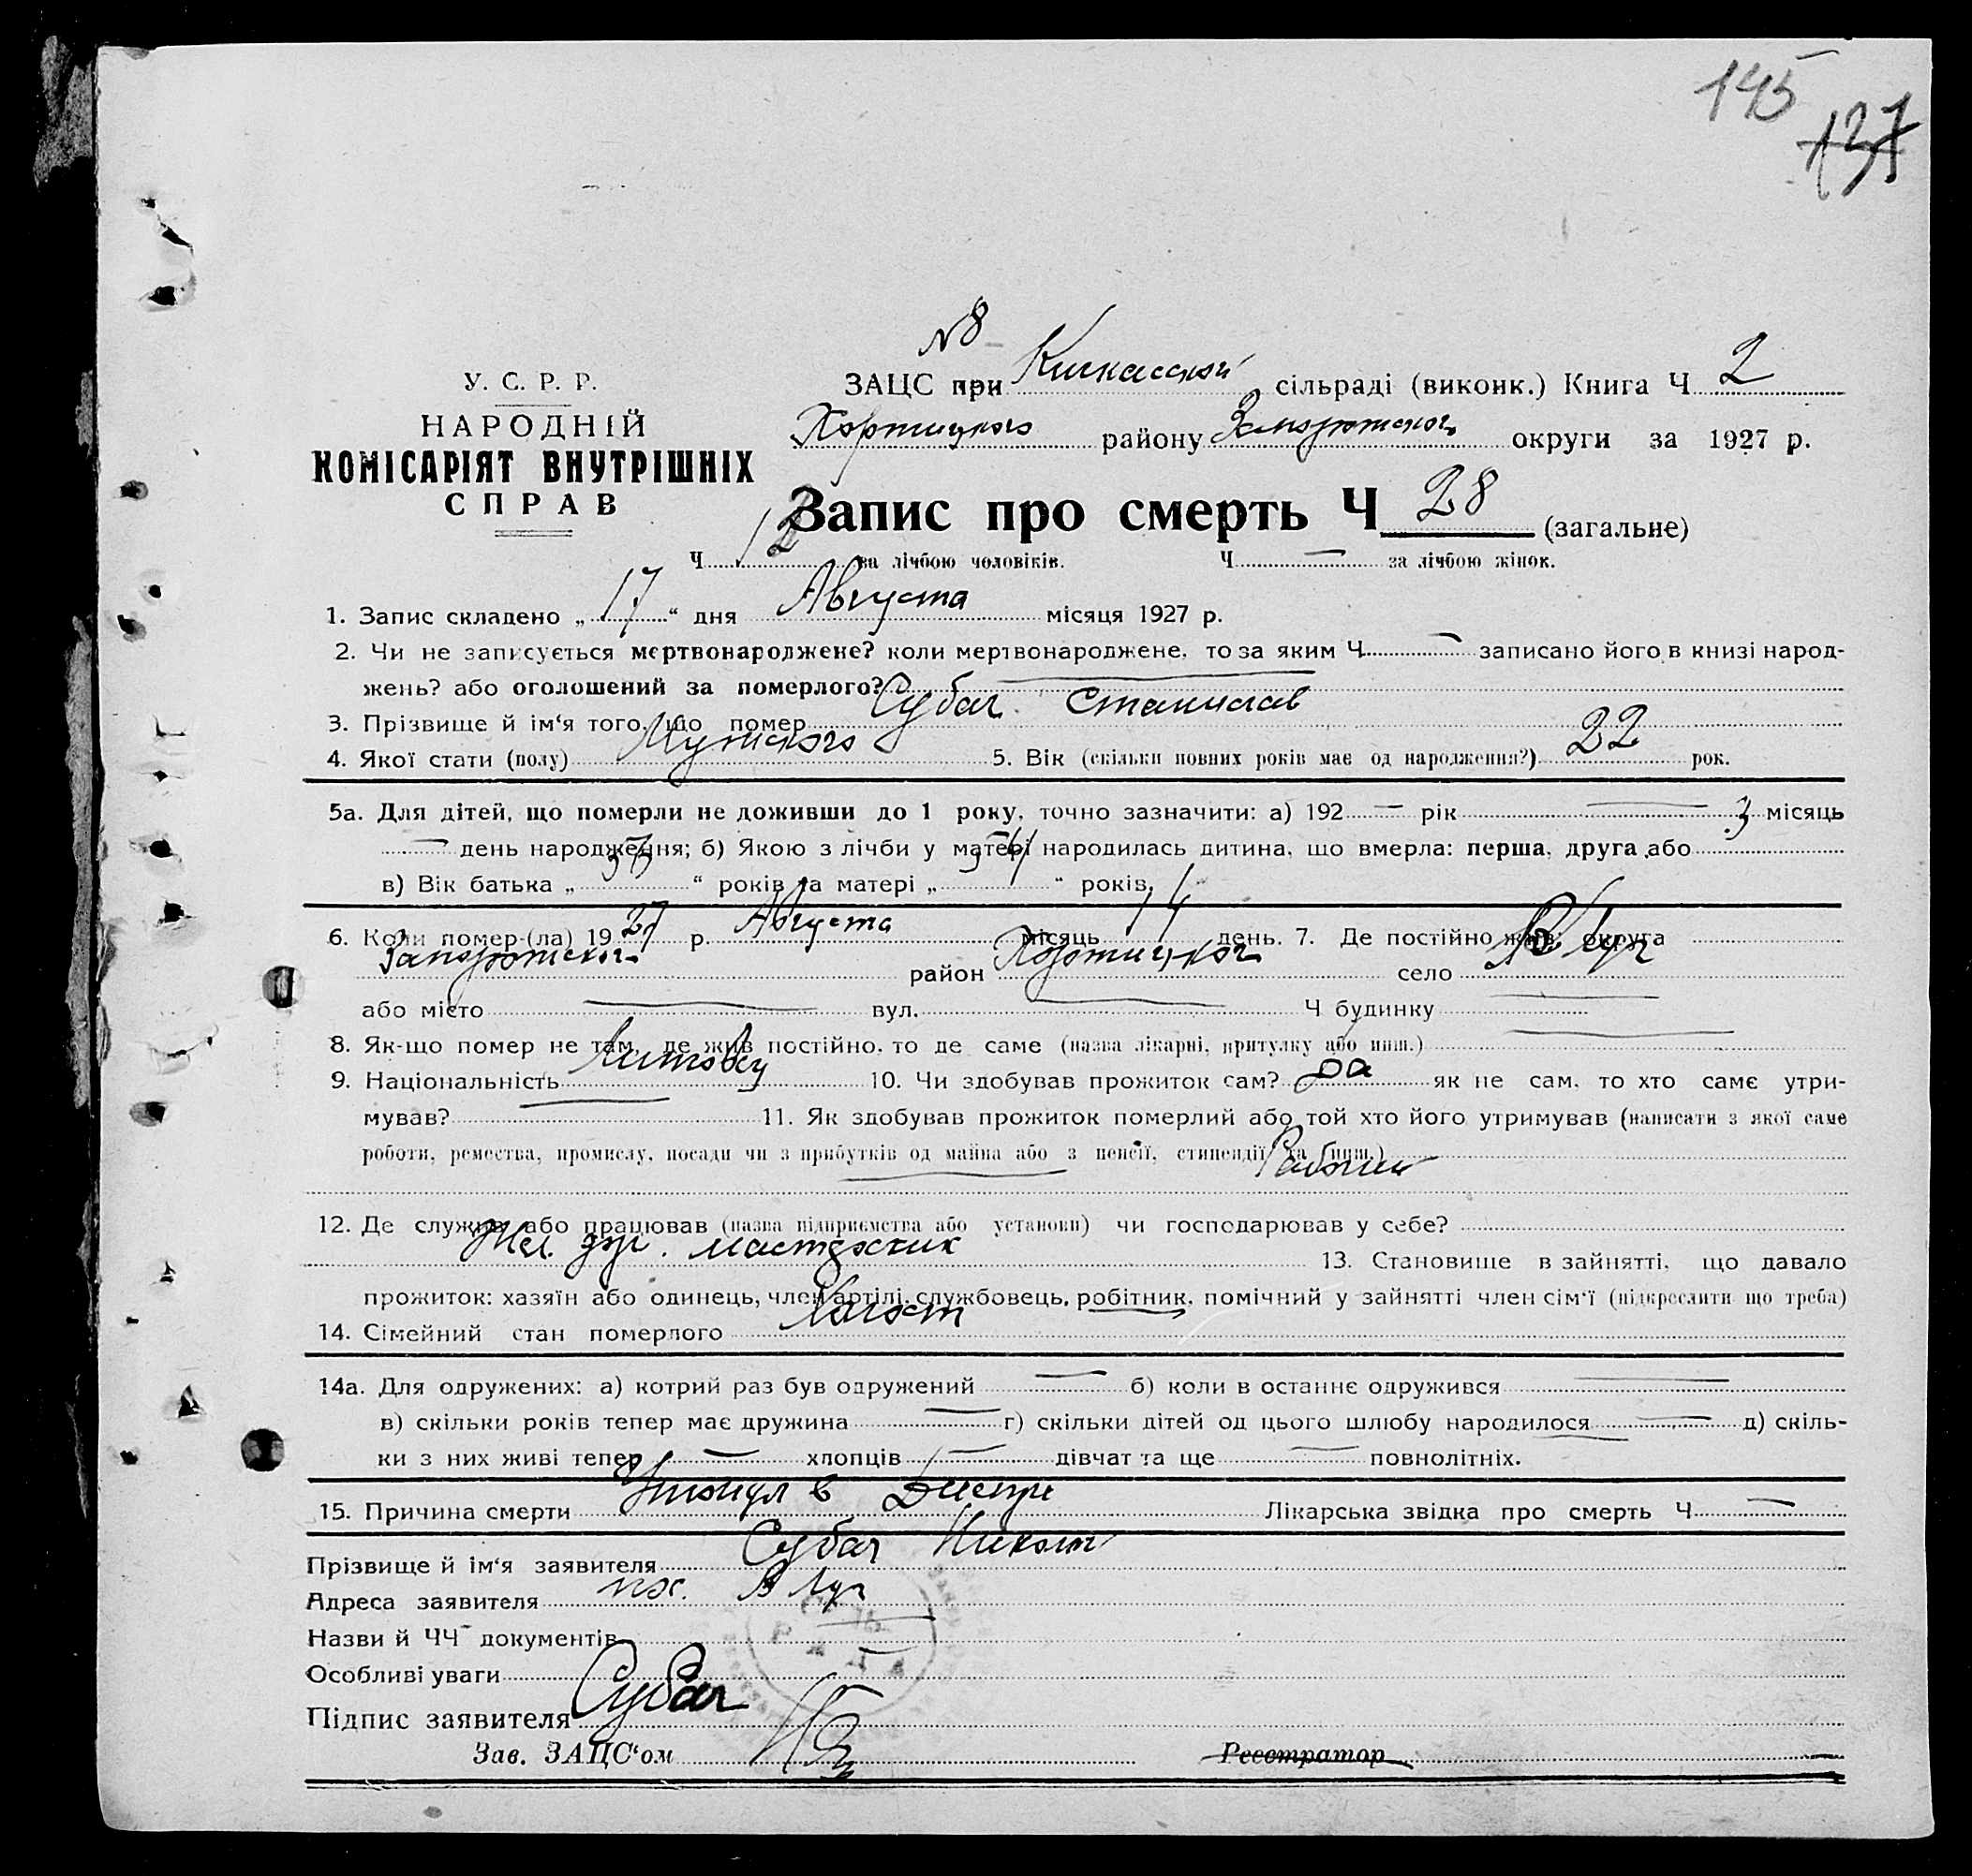 145
137
N8
У. С. Р. Р.
НАРОДНІЙ
КОМІСАРІЯТ ВНУТРІШНІХ
СПРАВ
ЗАЦС при Кичкасской сільраді (виконк.) Книга Ч 2
Хортицкого району Запорожского округи за 1927 р.
Запис про смерть Ч 28 (загальне)
Ч 12 за лічбою чоловіків. Ч — за лічбою жінок.
1. Запис складено „ 17 “ дня Августа місяця 1927 р.
2. Чи не записується мертвонароджене? коли мертвонароджене, то за яким Ч — записано його в книзі народ-
жень? або оголошений за померлого? —
3. Прізвище й ім‘я того, що помер Субач Станислав
4. Якої стати (полу) Мужского 5. Вік (скільки повних років має од народження?) 22 рок.
5а. Для дітей, що померли не доживши до 1 року, точно зазначити: а) 192 — рік — місяць
— день народження; б) Якою з лічби у матері народилась дитина, що вмерла: перша, друга, або 3
в) Вік батька „ “ років та матері „ “ років.
6. Коли помер-(ла) 19 27 р. Августа місяць 14 день. 7. Де постійно жив: округа
Запорожского район Хортицког село В Луг
або місто — вул. — Ч будинку —
8. Як-що помер не там, де жив постійно, то де саме (назва лікарні, притулку або инш.) —
9. Національність Литовец 10. Чи здобував прожиток сам? да як не сам, то хто саме утри-
мував? — 11. Як здобував прожиток померлий або той хто його утримував (написати з якої саме
роботи, ремества, промислу, посади чи з прибутків од майна або з пенсії, стипендії та инш.) Рабочий
12. Де служив або працював (назва підприємства або установи) чи господарював у себе?
Жел. дор. мастерских 13. Становище в зайнятті, що давало
прожиток: хазяїн або одинець, член артілі, службовець, робітник, помічний у зайнятті член сім‘ї (підкреслити що треба)
14. Сімейний стан померлого Холост
14а. Для одружених: а) котрий раз був одружений — б) коли в останнє одружився —
в) скільки років тепер має дружина — г) скільки дітей од цього шлюбу народилося — д) скіль-
ки з них живі тепер — хлопців — дівчат та ще — повнолітніх.
15. Причина смерти Утонул в Днепре Лікарська звідка про смерть Ч —
Прізвище й ім‘я заявителя Субач
Адреса заявителя В Луг
Назви й ЧЧ документів —
Особливі уваги —
Підпис заявителя Субач
Зав. ЗАЦС‘ом
Реєстратор